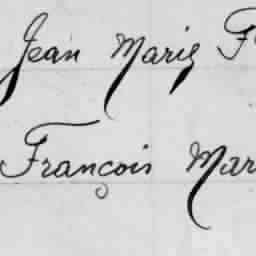 Jean Marie F
François Mar